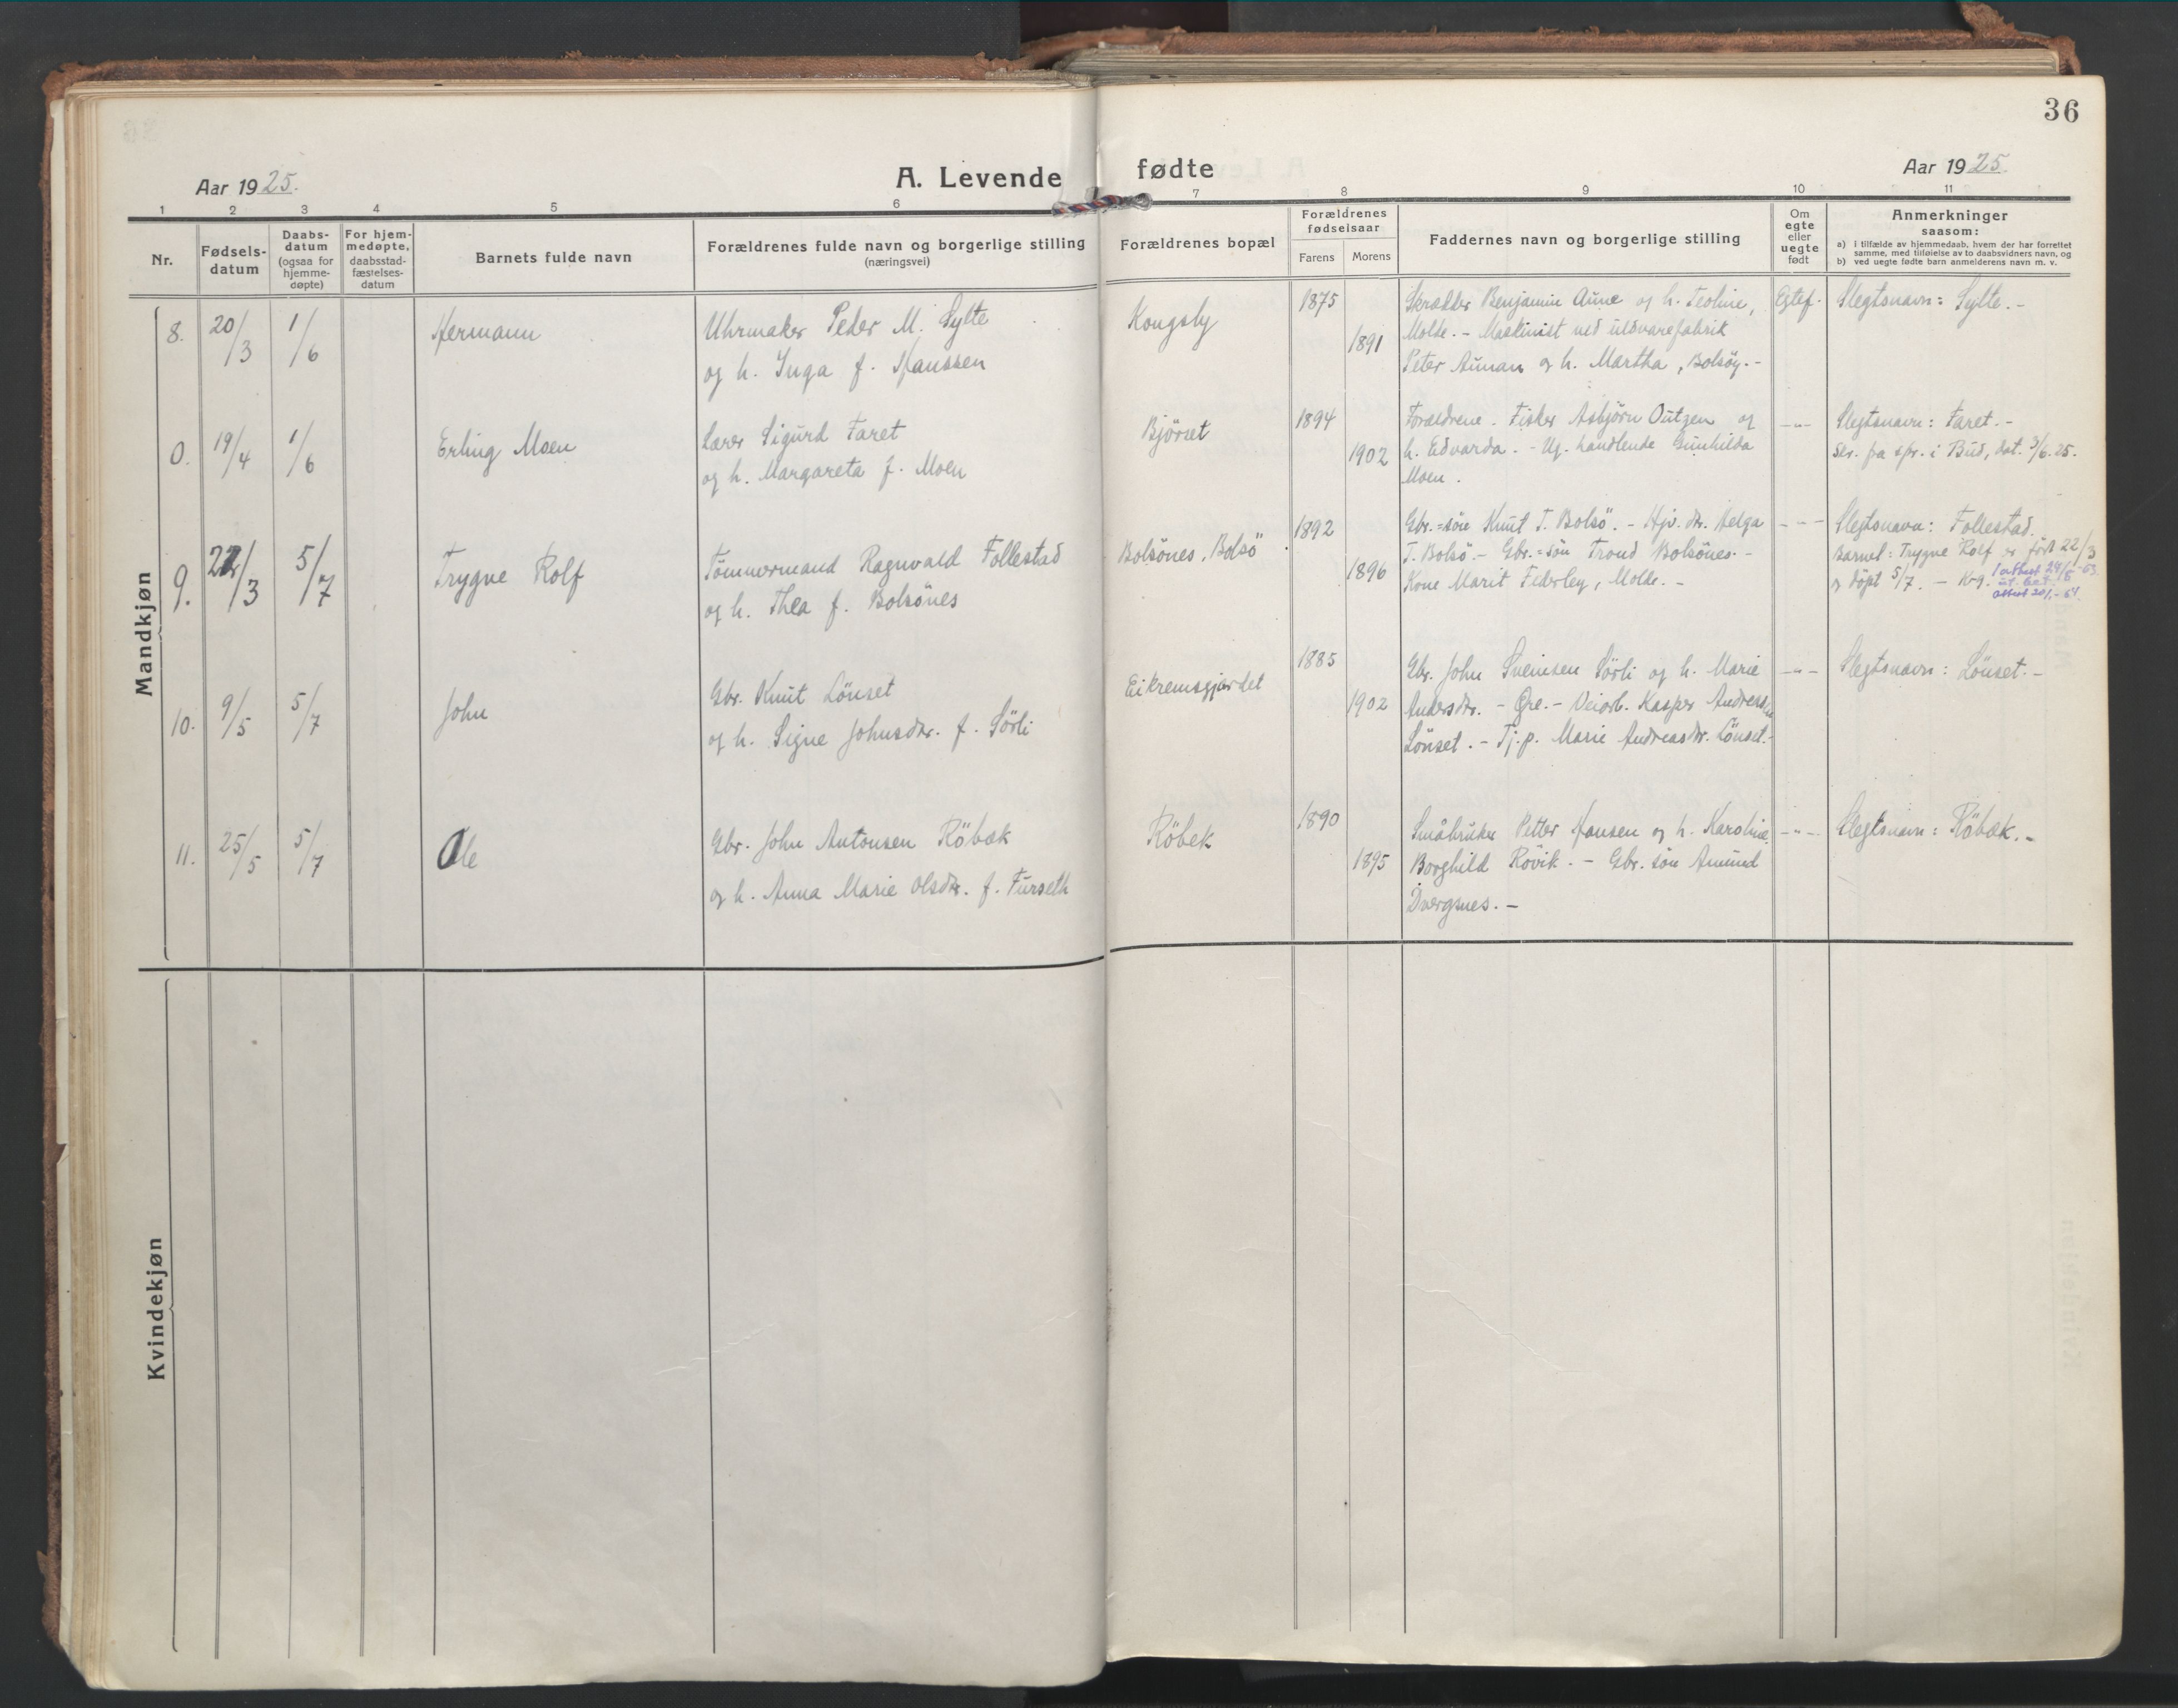 36
Aar 1925.
A. Levende fødte
Aar 1925.
1 2 3 4 5 6 7 8 9 10 11
Nr.
Fødsels-
datum
Daabs-
datum
(ogsaa for
hjemme-
døpte)
For hjem-
medøpte,
daabsstad-
fæstelses-
datum
Barnets fulde navn
Forældrenes fulde navn og borgerlige stilling
(næringsvei)
Forældrenes bopæl
Forældrenes
fødselsaar
Farens Morens
Faddernes navn og borgerlige stilling
Om
egte
eller
uegte
født
Anmerkninger
saasom:
a) i tilfælde av hjemmedaab, hvem der har forrettet
samme, med tilføielse av to daabsvidners navn, og
b) ved uegte fødte barn anmelderens navn m. v.
Mandkjøn
8. 20/3 1/6 Hermann
Uhrmaker Peder M. Sylte
og h. Inga f. Hanssen
Kongsby
1875
1891
Skrædder Benjamin Aune og h. Teoline,
Molde. - Maskinist ved uldvarefabrik
Peter Aunan og h. Martha, Bolsöy. -
Egtef.
Slegtsnavn: Sylte. -
0. 19/4 1/6 Erling Moen
Lærer Sigurd Faret
og h. Margareta f. Moen
Björset
1894
1902
Forældrene. Fisker Asbjörn Outzen og
h. Edvarda. - Ug. handlende Gunhilda
Moen.
-"-
Slegtsnavn: Faret. -
Skr. fra spr. i Bud, dat. 3/6.25.
9. 22/3 5/7 Trygve Rolf
Tömmermand Ragnvald Follestad
og h. Thea f. Bolsönes
Bolsönes, Bolsö
1892
1896
Gbr.=sön Knut T. Bolsö. - Hjv. dr. Helga
T. Bolsö. - Gbr.=sön Trond Bolsönes. -
Kone Marit Federley, Molde. -
-"-
Slegtsnavn: Follestad.
Barnet: Trygve Rolf er födt 22/3
og döpt 5/7. - Krg.
10. 9/5 5/7 John
Gbr. Knut Lönset
og h. Signe Johnsdr. f. Sörli
Eikremsgjærdet
1885
1902
Gbr. John Sveinsen Sörli og h. Marie
Andersdr. - Øre. - Veiarb. Kasper Andreassen
Lönset. - Tj.p. Marie Andreasdr. Lönset. -
-"-
Slegtsnavn: Lönset. -
11. 25/5 5/7 Ole
Gbr. John Antonsen Röbæk
og h. Anna Marie Olsdr. f. Furseth
Röbek
1890
1895
Småbruker Petter Hansen og h. Karoline.
Borghild Rövik. - Gbr. sön Amund
Dvergsnes. -
-"-
Slegtsnavn: Röbæk. -
Kvindekjøn